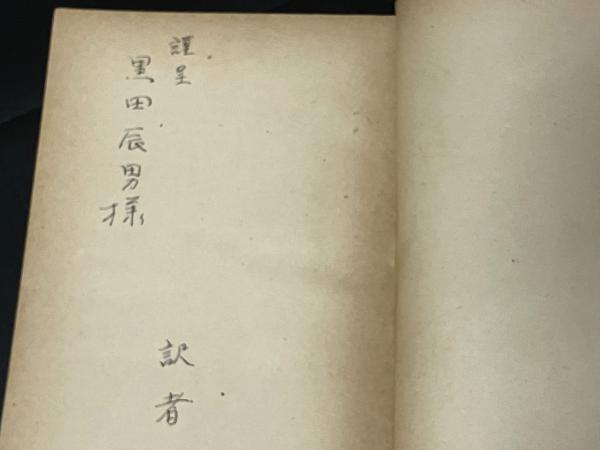 謹呈
黒田辰男様
訳者